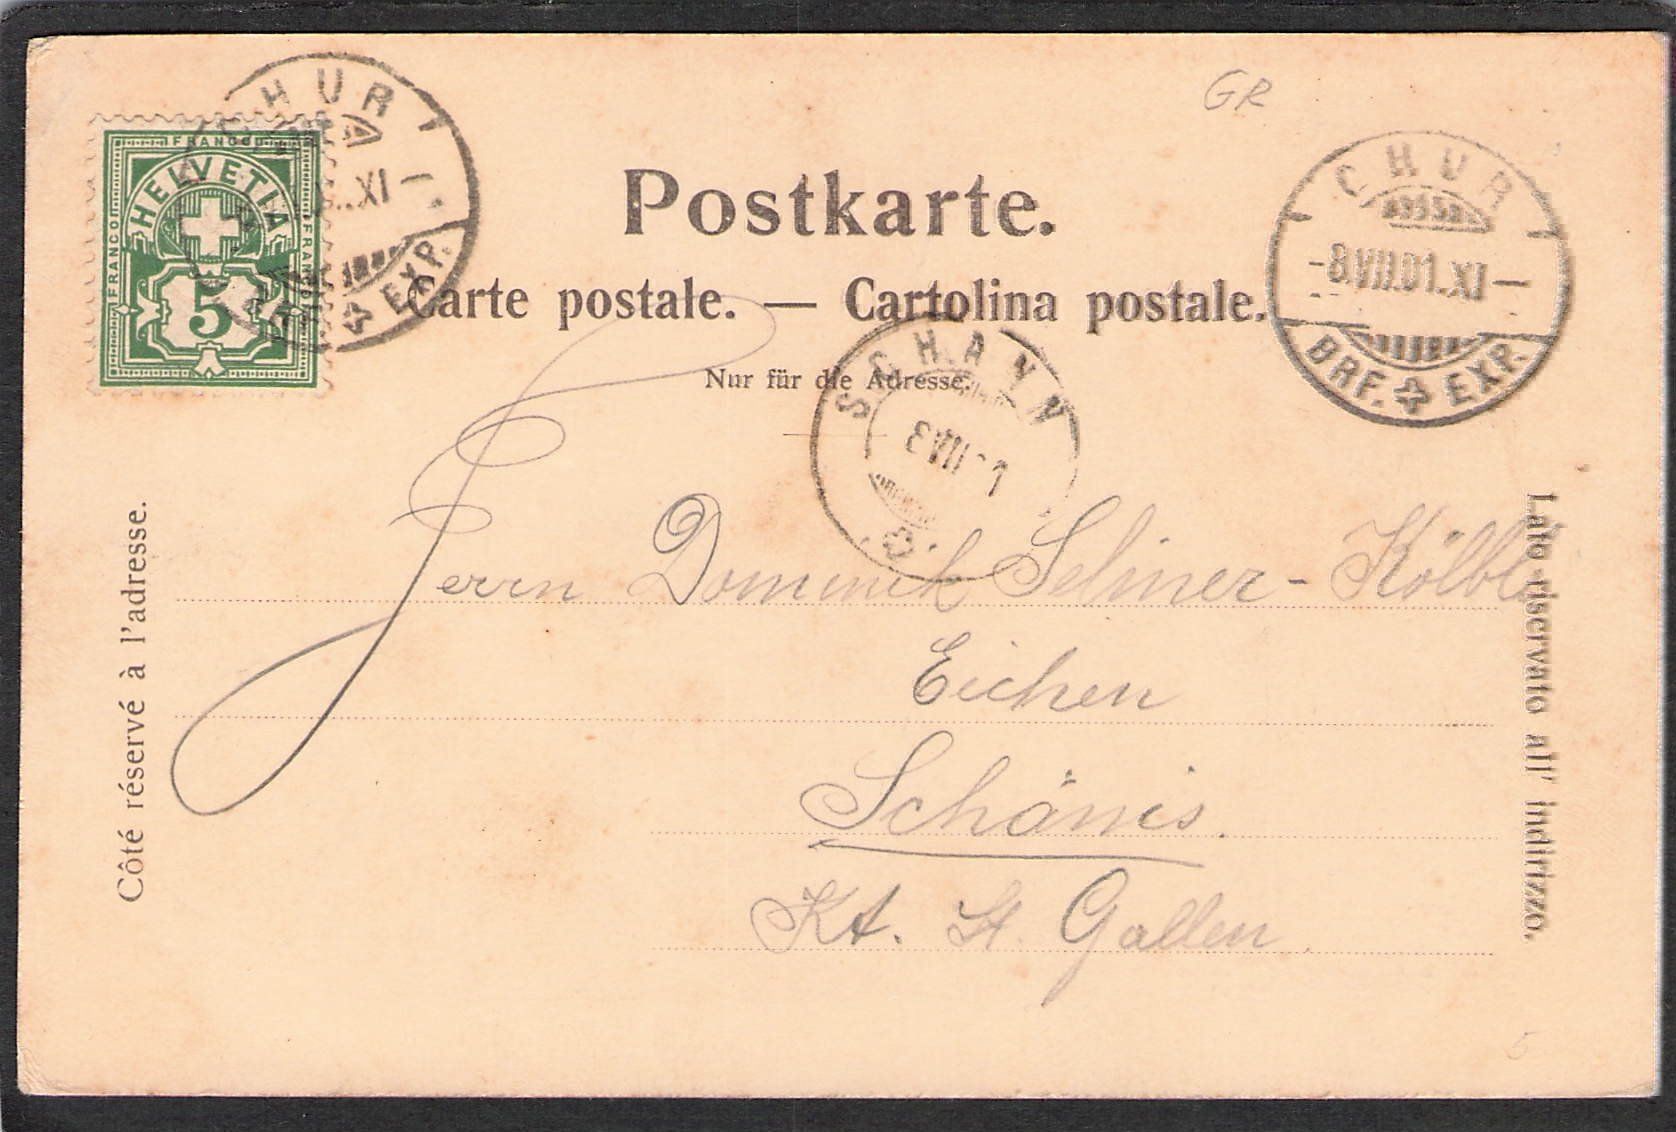 GR
FRANCO
HELVETIA
FRANCO
FRANCO
5
CHUR
XI
BRF. EXP.
Postkarte.
Carte postale. — Cartolina postale.
Nur für die Adresse.
CHUR
-8.VII.01.XI-
BRF. EXP.
SCHÄNN
VII 1
Côté réservé à l'adresse.
Lato riservato all' indirizzo.
Herrn Dominik Selmer-Kölbl
Eichen
Schänis.
Kt. St. Gallen.
5